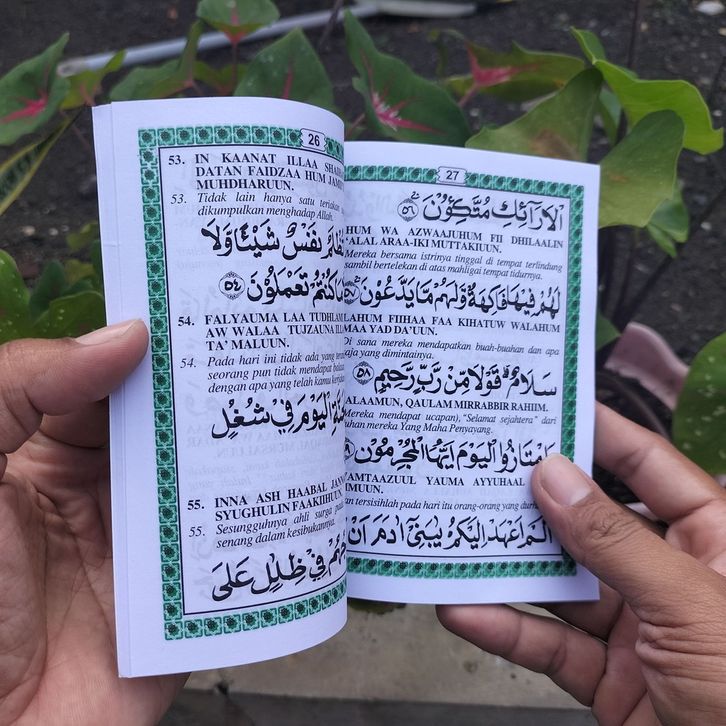 26
53. IN KAANAT ILLAA
DATAN FAIDZAA HUM
MUHDHARUUN.
53. Tidak lain hanya satu
dikumpulkan menghadap Allah.
نَفْسٌ شَيْئًا وَّلَا
كُنْتُمْ تَعْمَلُوْنَ ٥٤
54. FALYAUMA LAA
AW WALAA TUJZAUNA
TA' MALUUN.
54. Pada hari ini tidak ada yang
seorang pun tidak mendapat
dengan apa yang telah kamu
الْيَوْمَ فِيْ شُغُلٍ
55. INNA ASH HAABAL
SYUGHULIN FAAKIHUUN.
55. Sesungguhnya ahli surga
senang dalam kesibukannya.
فِيْ ظِلٰلٍ عَلَى
27
الْاَرَائِكِ مُتَّكِؤُنَ ٥٦
HUM WA AZWAAJUHUM FII DHILAALIN
'ALAL ARAA-IKI MUTTAKIUUN.
Mereka bersama istrinya tinggal di tempat terlindung
sambil bertelekan di atas mahligai tempat tidurnya.
لَهُمْ فِيْهَا فَاكِهَةٌ وَّلَهُمْ مَّا يَدَّعُوْنَ ٥٧
LAHUM FIIHAA FAA KIHATUW WALAHUM
MAA YAD DA'UUN.
Di sana mereka mendapatkan buah-buahan dan apa
saja yang dimintainya.
سَلَامٌ قَوْلًا مِّنْ رَّبٍّ رَّحِيْمٍ ٥٨
ALAAMUN, QAULAM MIRRABBIR RAHIIM.
Mereka mendapat ucapan), "Selamat sejahtera" dari
uhan mereka Yang Maha Penyayang.
امْتَازُوا الْيَوْمَ اَيُّهَا الْمُجْرِمُوْنَ
AMTAAZUUL YAUMA AYYUHAAL
MUUN.
an tersisihlah pada hari itu orang-orang yang
اَلَمْ اَعْهَدْ اِلَيْكُمْ يٰبَنِيْٓ اٰدَمَ اَنْ